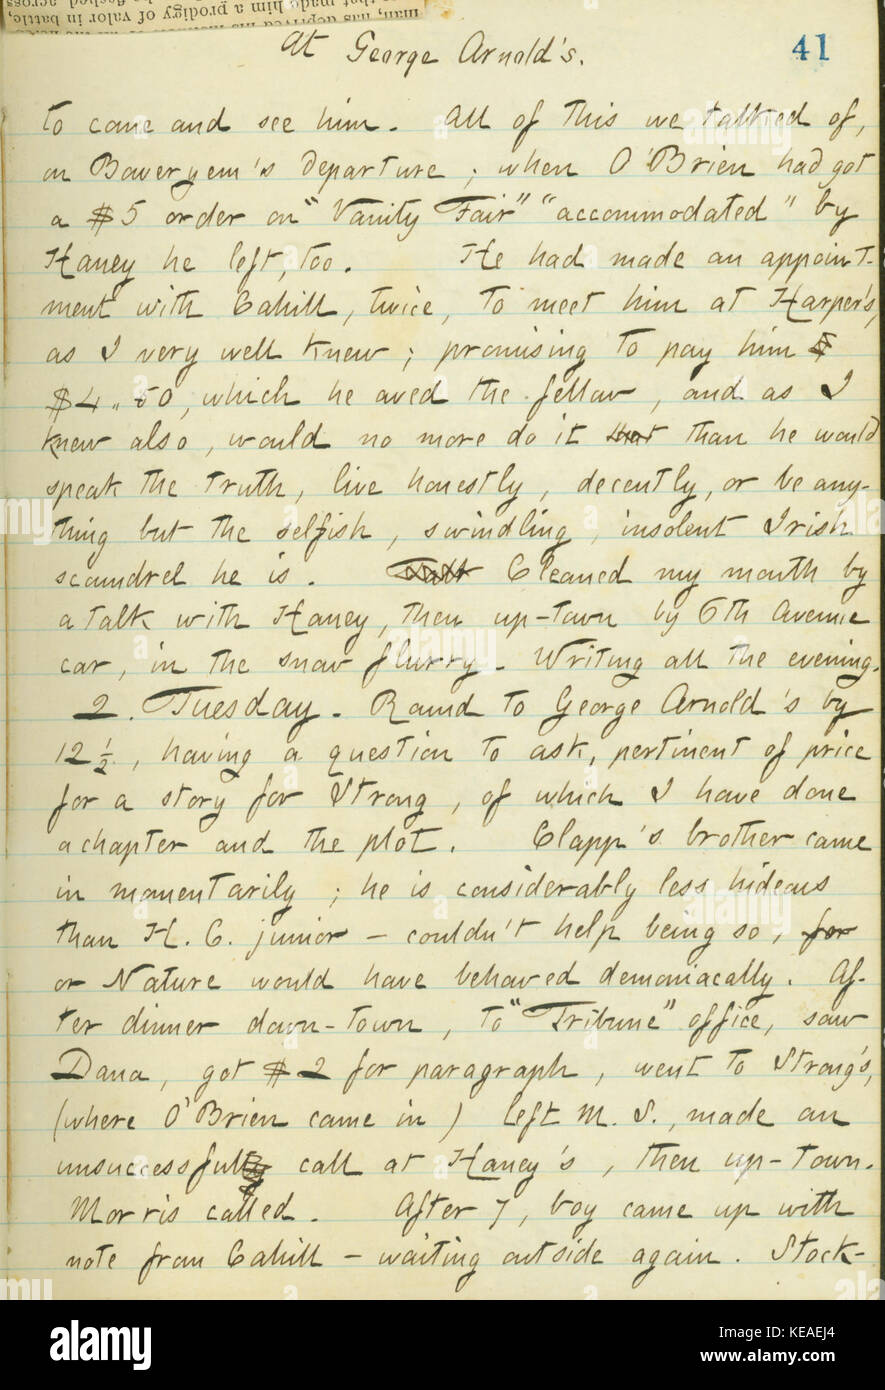 man, has deprived his
that made him a prodigy of valor in battle,
At George Arnold's.
41
to come and see him. All of this we talked of,
on Boweryem's departure; when O'Brien had got
a $5 order on "Vanity Fair" "accommodated" by
Haney he left, too. He had made an appoint-
ment with Cahill, twice, to meet him at Harper's,
as I very well knew; promising to pay him $
$4.50, which he owed the fellow, and as I
knew also, would no more do it that than he would
speak the truth, live honestly, decently, or be any-
thing but the selfish, swindling, insolent Irish
scoundrel he is. Cleaned my mouth by
a talk with Haney, then up-town by 6th Avenue
car, in the snow flurry. Writing all the evening.
2. Tuesday. Round to George Arnold's by
12 ½, having a question to ask, pertinent of price
for a story for Strong, of which I have done
a chapter and the plot. Clapp's brother came
in momentarily; he is considerably less hideous
than H. C. junior — couldn't help being so, for
or Nature would have behaved demoniacally. Af-
ter dinner down-town, to "Tribune" office, saw
Dana, got $2 for paragraph, went to Strong's,
(where O'Brien came in) left M. S., made an
unsuccessful call at Haney's, then up-town.
Morris called. After 7, boy came up with
note from Cahill — waiting outside again. Stock-
alamy
Image ID: KEAEJ4
www.alamy.com